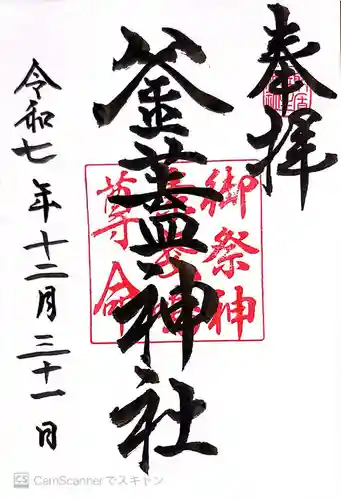 奉拝
釜蓋神社
御祭神
尊命
令和七年十二月三十一日
CamScannerでスキャン